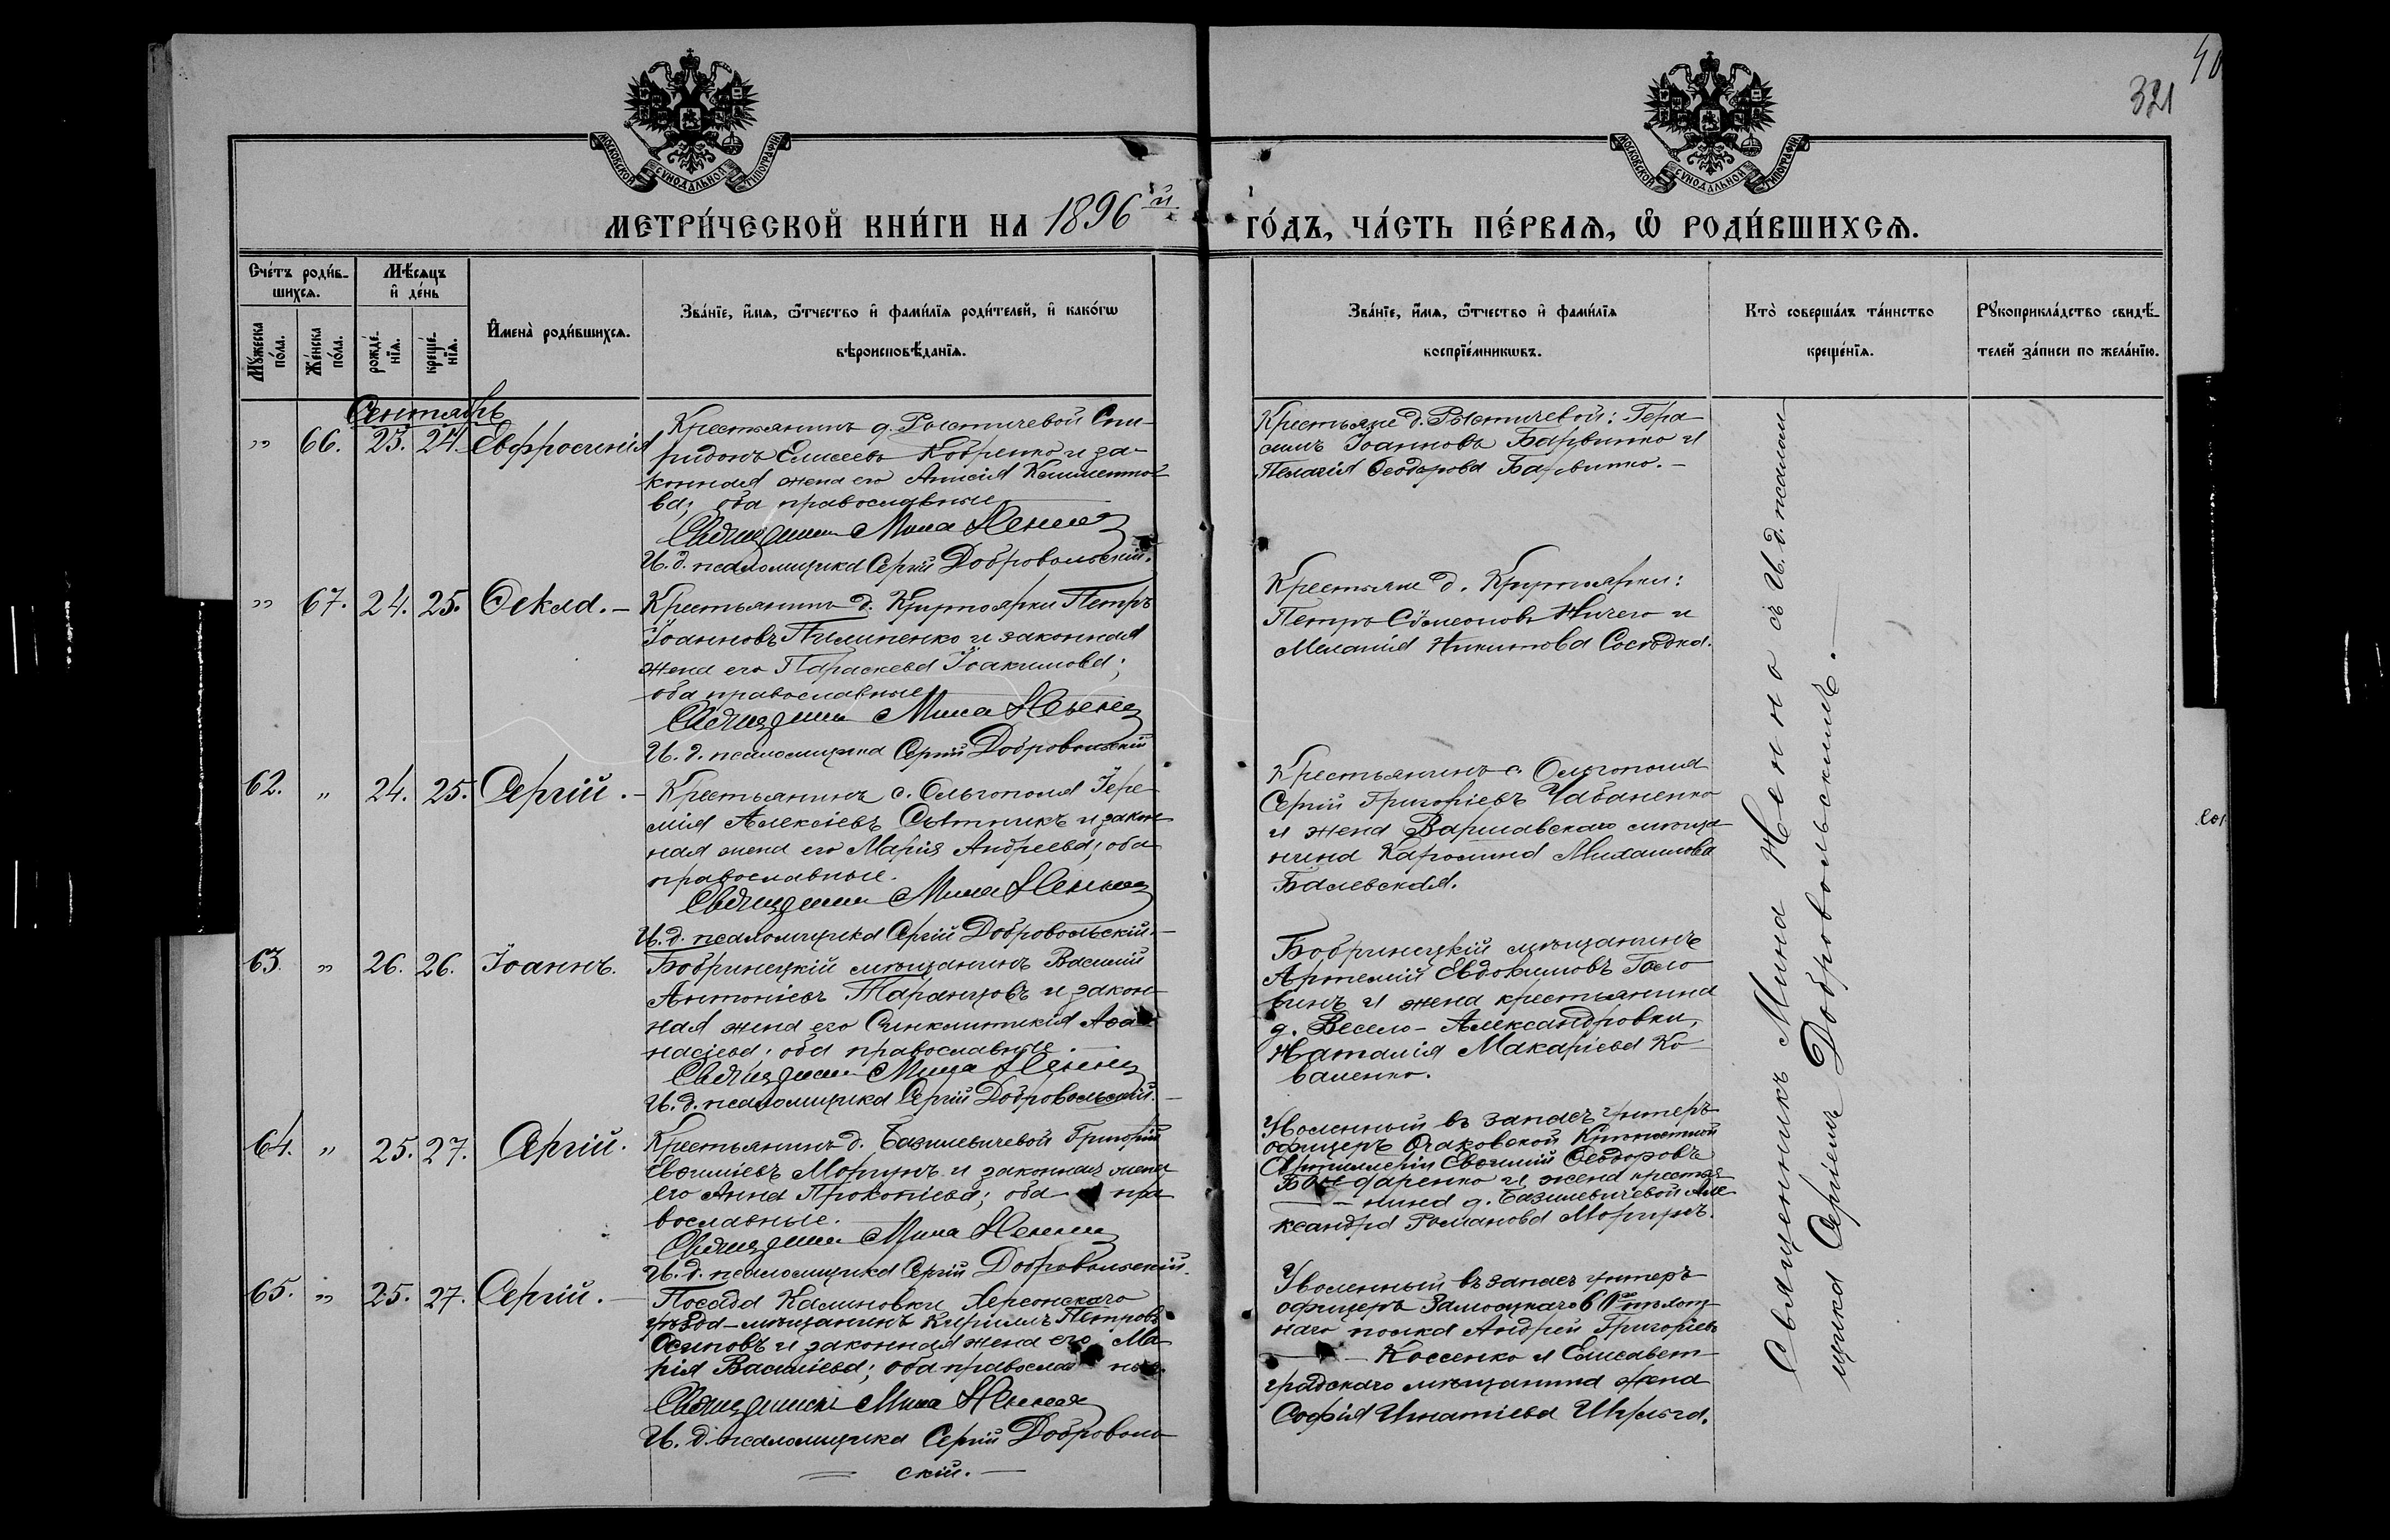 40
321
МОСКОВСКОЙ СѴНОДАЛЬНОЙ ТИПОГРАФІИ
МОСКОВСКОЙ СѴНОДАЛЬНОЙ ТИПОГРАФІИ
МЕТРИ́ЧЕСКОЙ КНИ́ГИ НА 1896й ГО́ДЪ, ЧА́СТЬ ПЕ́РВАѦ, Ѡ҆ РОДИ́ВШИХСѦ.
Сче́тъ роди́в-
шихсѧ.
Мꙋ́жеска
по́ла.
Же́нска
по́ла.
Мѣ́сѧцъ
и҆ де́нь
рожде́-
нїѧ.
креще́-
нїѧ.
И҆мена̀ роди́вшихсѧ.
Зва́нїе, и҆́мѧ, ѻ҆́тчество и҆ фами́лїѧ роди́телей, и҆ како́гѡ
вѣроисповѣ́данїѧ.
Зва́нїе, и҆́мѧ, ѻ҆́тчество и҆ фами́лїѧ
воспрїе́мникѡвъ.
Кто̀ соверша́лъ та́инство
креще́нїѧ.
Рꙋкоприкла́дство свидѣ́-
телей за́писи по жела́нїю.
Сентябрь
„ 66. 23. 24. Евфросинія
Крестьянинъ д. Ростичевой Спи-
ридонъ Елисеевъ Кобренко и за-
конная жена его Анисія Климентьо-
ва; оба православные
Священникъ Мина Ненно
И. д. псаломщика Сергій Добровольскій.
Крестьяне д. Ростичевой: Гера-
симъ Іоанновъ Барвинко и
Пелагія Ѳеодорова Барвинко. -
„ 67. 24. 25. Ѳекла. -
Крестьянинъ д. Криртоярки Петръ
Іоанновъ Пилипенко и законная
жена его Параскева Іоакимова;
оба православные
Священникъ Мина Ненно
И. д. псаломщика Сергій Добровольскій
Крестьяне д. Криртоярки:
Петръ Сѵмеоновъ Ничего и
Меланія Никитова Сосѣдка.
62. „ 24. 25. Сергій. -
Крестьянинъ с. Ольгополя Іере-
мія Алексіевъ Сытникъ и закон-
ная жена его Марія Андреева; оба
православные.
Священникъ Мина Ненно
И. д. псаломщика Сергій Добровольскій. -
Крестьянинъ с. Ольгополя
Сергій Григоріевъ Чабаненко
и жена Варшавскаго мѣща-
нина Каролина Михаилова
Балевская.
63. „ 26. 26. Іоаннъ.
Бобринецкій мѣщанинъ Василій
Антоніевъ Таранцовъ и закон-
ная жена его Синклитикія Аѳа-
насіева; оба православные. -
Священникъ Мина Ненно
И. д. псаломщика Сергій Добровольскій. -
Бобринецкій мѣщанинъ
Артемій Евдокимовъ Голо-
винъ и жена крестьянина
д. Весело-Александровки,
Наталія Макаріева Ко-
валенко.
64. „ 25. 27. Сергій.
Крестьянинъ д. Базилевичевой Григорій
Евѳиміевъ Моргунъ и законная жена
его Анна Прокопіева; оба пра-
вославные.
Священникъ Мина Ненно
И. д. псаломщика Сергій Добровольскій.
Уволенный въ запасъ унтеръ-
офицеръ Очаковской Крѣпостной
Артиллеріи Евѳимій Ѳеодоровъ
даренко и жена крестья-
нина д. Базилевичевой Але-
ксандра Романова Моргунъ.
65. „ 25. 27. Сергій. -
Посада Калиновки Херсонскаго
уѣзда мѣщанинъ Кириллъ Петровъ
Осиповъ и законная жена его Ма-
рія Василіева; оба православные.
Священникъ Мина Ненно
И. д. псаломщика Сергій Доброволь-
скій. -
Уволенный въ запасъ унтеръ-
офицеръ Замосцкаго 60го пѣхот-
наго полка Андрей Григоріевъ
Коссенко и Елисавет-
градскаго мѣщанина жена
Софія Игнатіева
Священникъ Мина Ненно съ И. д. псалом-
щика Сергіемъ Добровольскимъ. -